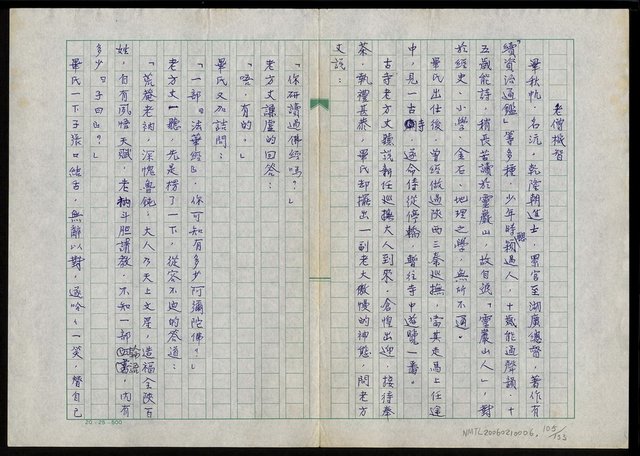 老僧機智
畢秋帆,名沅,乾隆朝進士,累官至湖廣總督,著作有
「續資治通鑑」等多種,少年時穎慧過人,十歲能通聲韻,十
五歲能詩,稍長苦讀於靈巖山,故自號「靈巖山人」,對
於經史、小學、金石、地理之學,無所不通。
畢氏出任後,曾經做過陝西三秦巡撫,當其走馬上任途
中,見一古寺,遂令侍從停轎,暫往寺中遊覽一番。
古寺老方丈聽說新任巡撫大人到來,倉惶出迎,接待奉
茶,執禮甚恭,畢氏却擺出一副老大傲慢的神態,問老方
丈說:
「你研讀過佛經嗎?」
老方丈謙虛的回答:
「唔,有的。」
畢氏又加詰問:
「一部『法華經』,你可知有多少阿彌陀佛?」
老方丈一聽,先是楞了一下,從容不迫的答道:
「荒菴老衲,深愧魯鈍,大人乃天上文星,造福全陝百
姓,自有夙悟天賦,老衲斗胆請教,不知一部論語,內有
多少『子曰』?」
畢氏一下子張口結舌,無辭以對,遂哈哈一笑,替自己
20×25=500
NMTL20060210006. 105/133